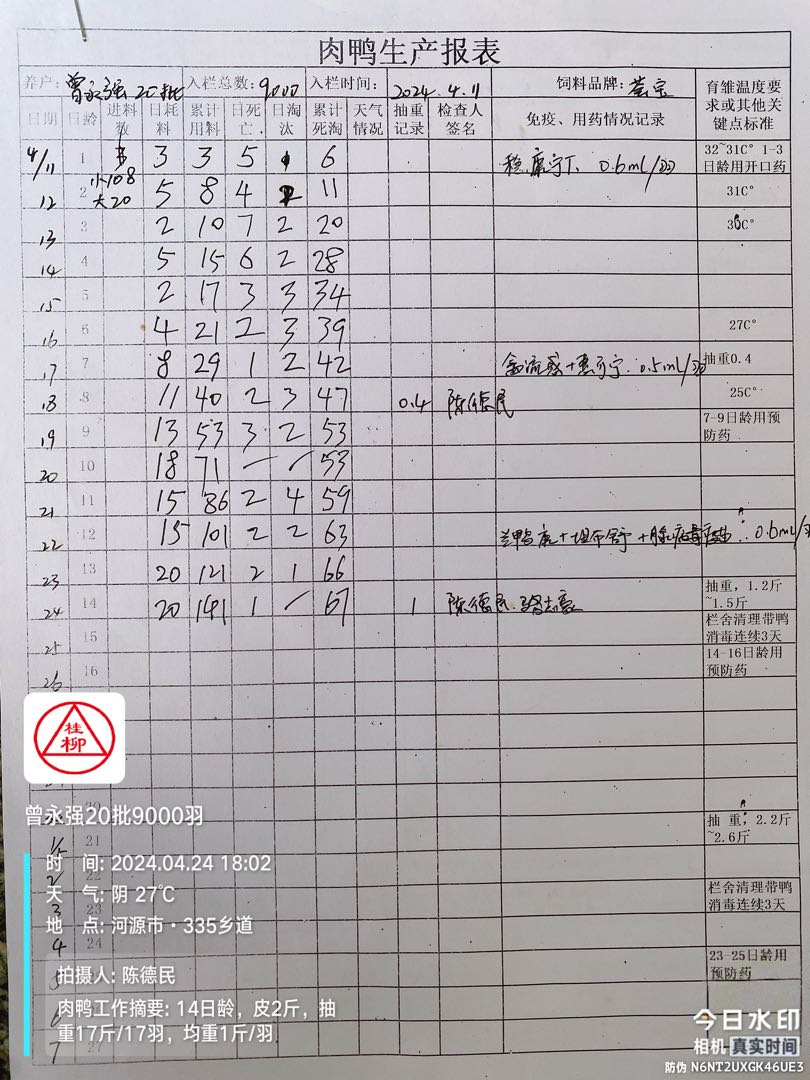 肉鸭生产报表
养户: 曾永强 20批 入栏总数: 9000 入栏时间: 2024.4.11 饲料品牌: 育雏温度要求或其他关键点标准
日期 日龄 进料数 日耗料 累计用料 日死亡 日淘汰 累计死淘 天气情况 抽重记录 检查人签名 免疫、用药情况记录
4/11 1 3 3 5 1 6 0.6ml/羽 32~31C° 1-3日龄用开口药
12 2 小108 大20 5 8 4 2 11 31C°
13 3 2 10 7 2 20 30C°
14 4 5 15 6 2 28
15 5 2 17 3 3 34
16 6 4 21 2 3 39 27C°
17 7 8 29 1 2 42 禽流感+ 0.5ml/羽 抽重0.4
18 8 11 40 2 3 47 0.4 陈德民 25C°
19 9 13 53 3 2 53 7-9日龄用预防药
20 10 18 71 — — 53
21 11 15 86 2 4 59
22 12 15 101 2 2 63 0.6ml/羽
23 13 20 121 2 1 66
24 14 20 141 1 — 67 1 陈德民 抽重，1.2斤~1.5斤
25 15 栏舍清理带鸭消毒连续3天
26 16 14-16日龄用预防药
桂柳
曾永强20批9000羽
21 抽 重，2.2斤~2.6斤
时 间: 2024.04.24 18:02
2 22
天 气: 阴 27℃
3 23 栏舍清理带鸭消毒连续3天
地 点: 河源市·335乡道
4 24
23-25日龄用预防药
拍摄人: 陈德民
肉鸭工作摘要: 14日龄，皮2斤，抽
重17斤/17羽，均重1斤/羽
7 27
今日水印
相机 真实时间
防伪 N6NT2UXGK46UE3